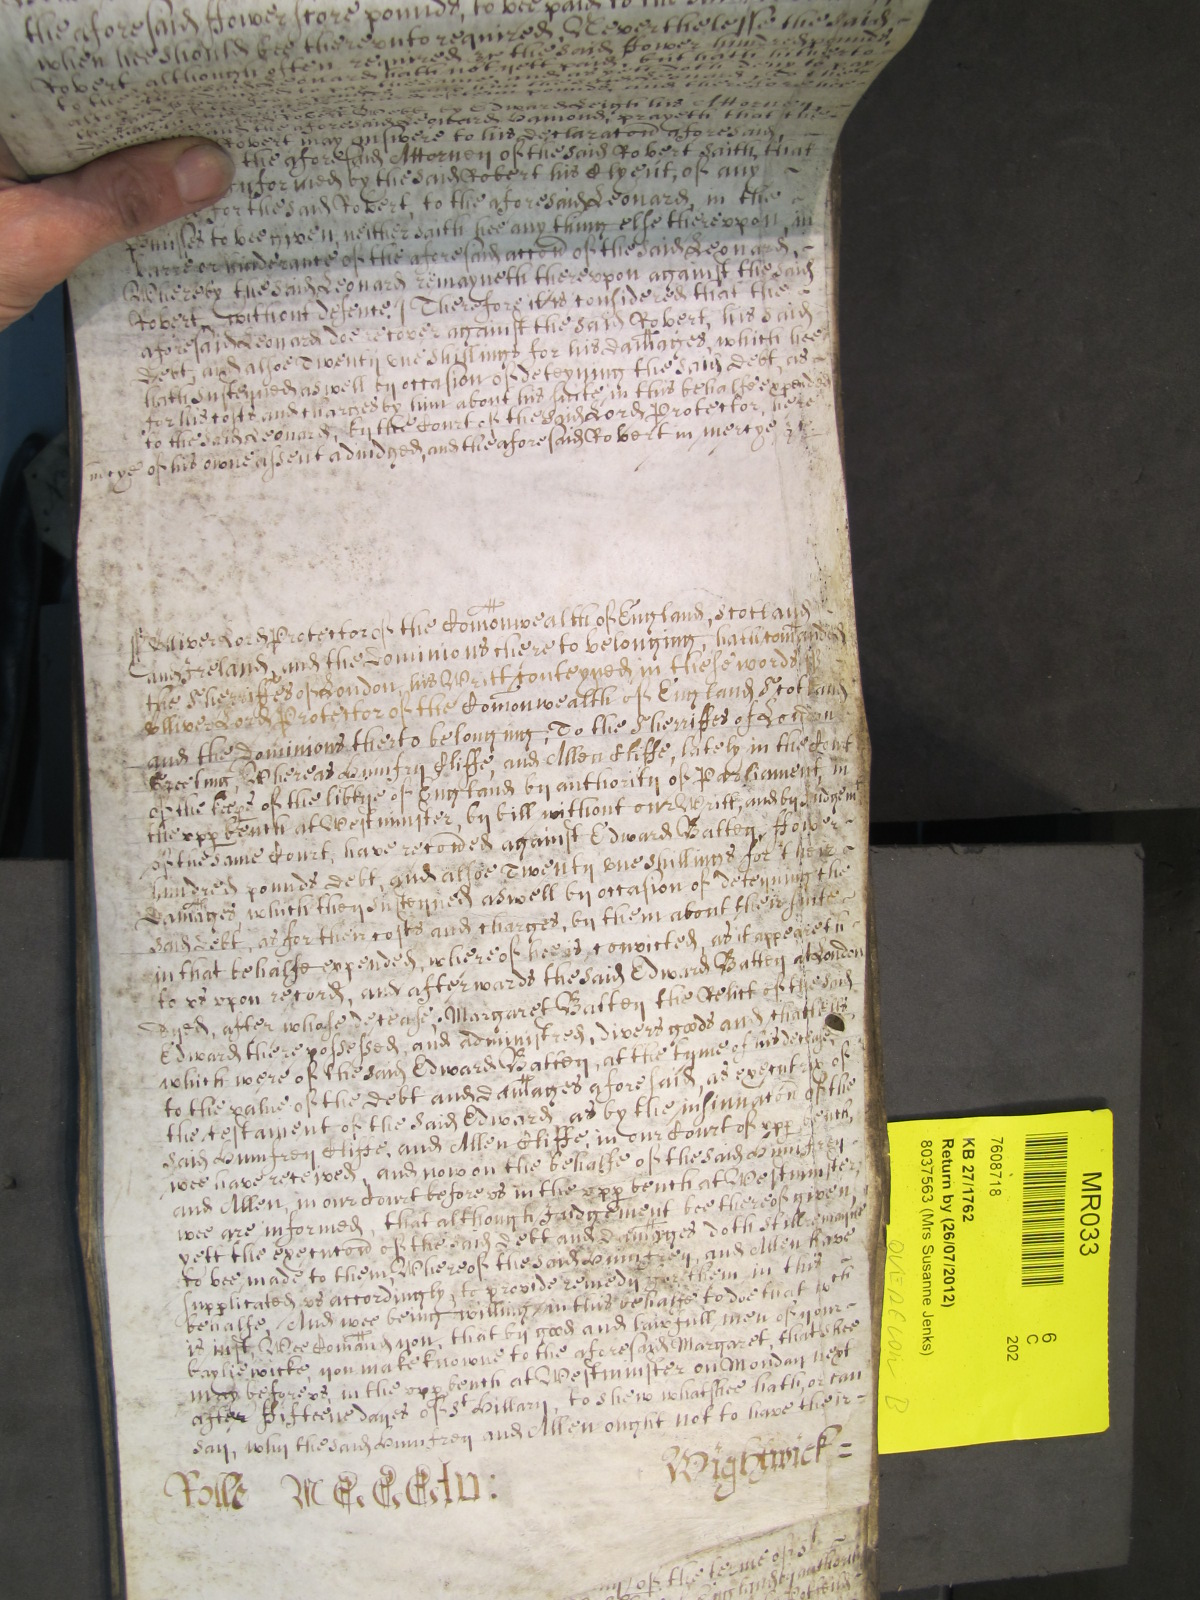 the aforesaid ffower score pounds, to bee paid to the
when hee should bee therevnto required, Neverthelesse the said
Robert although often required the said ffower hundred pounds,
to the said Leonard hath not yett paid, but hath hitherto
by Edward Leigh his Attorney
and the aforesaid Leonard Hamond, prayeth that the
Robert may answere to his declaracon aforesaid,
the aforesaid Attorney of the said Robert saith, that
informed by the said Robert his Clyent, of any
for the said Robert, to the aforesaid Leonard, in the
pmisses to bee given, neither saith hee any thing else therevpon, in
barre or hinderance of the aforesaid accon of the said Leonard,
Whereby the said Leonard remayneth therevpon against the said
Robert, without defence / Therefore it is considered that the
aforesaid Leonard doe recover against the said Robert, his said
debt, and alsoe Twenty one shillings for his damages, which hee
hath susteyned aswell by occasion of deteyning the said debt, as
for his costs and charges by him about his suite, in this behalfe expended
to the said Leonard, by the Court of the said Lord Protector, here
mcye of his owne assent adiudged, and the aforesaid Robert in mercye &c
Olliver Lord Protector of the Comonwealth of England, Scotland
and Ireland, and the Dominions thereto belonging, hath comanded
the Sherriffes of London, his Writt conteyned in these words, ss
Olliver Lord Protector of the Comonwealth of England Scotland
and the Dominions therto belonging, To the Sherriffes of London
Greeting, Whereas Humfry Cliffe, and Allen Cliffe, lately in the Court
of the keeps of the libtye of England by authority of Parliament, in
the vpp bench at Westminster, by bill without our Writt, and by Judgemt
of the same Court, have recoved against Edward Batten, ffower
hundred pounds debt, and alsoe Twenty one shillings for their
damages, which they susteyned aswell by occasion of deteyning the
said debt, as for their costs and charges, by them about their suite
in that behalfe expended, whereof hee is convicted, as it appeareth
to vs vpon record, and afterwards the said Edward Batten at London
dyed, after whose decease, Margaret Batten the Relict of the said
Edward there possessed, and administred, divers goods and chattells
which were of the said Edward Batten, at the tyme of his decease
to the value of the debt and damages aforesaid, as executrix of
the testament of the said Edward, as by the insinuacon of the
said Humfrey Cliffe, and Allen Cliffe, in our Court of vpp bench,
wee have received, and now on the behalfe of the said Humfrey
and Allen, in our Court before vs in the vpp bench at Westminster,
wee are informed, that although Judgement bee thereof given,
yett the execucon of the said debt and damages doth still remayne
to bee made to them, Whereof the said Humfrey, and Allen have
supplicated vs accordingly, to provide remedy for them in this
behalfe, And wee being willing in this behalfe to doe that wch
is iust, Wee Comand you, that by good and lawfull men of your
baylie wicke, you make knowne to the aforesaid Margaret, that shee
may before vs, in the vpp bench at Westminster on Monday next
after ffifteene dayes of St Hillary, to shew what shee hath, or can
say, why the said Humfrey and Allen ought not to have their
Rolle MCCCCIV: Wightwick
of the terme of St
MR033
6
C
202
7608718
KB 27/1762
Return by (26/07/2012)
8037563 (Mrs Susanne Jenks)
OVERFLOW B